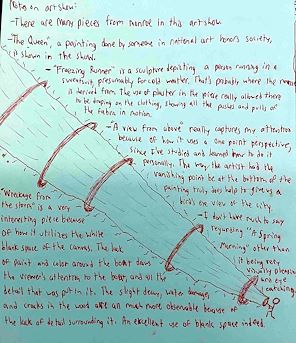 Note on art show:
-There are many pieces from Monroe in this art show
-"The Queen", a painting done by someone in national art honors society,
is shown in the show.
-"Freezing Runner" is a sculpture depicting a person running in a
sweatsuit, presumably for cold weather. That's probably where the name
is derived from. The use of plaster in the piece really allowed there
to be draping on the clothing, showing all the pushes and pulls of
the fabric in motion.
-"A view from above" really captures my attention
because of how it uses a one point perspective,
since I've studied and learned how to do it
personally. The way the artist had the
vanishing point be at the bottom of the
painting truly does help to give us a
birds eye view of the city.
-I don't have much to say
regarding "A Spring
Morning" other than
it being very
visually pleasing
and eye
catching.
"Wreckage from
the storm" is a very
interesting piece because
of how it utilizes the white
blank space of the canvas. The lack
of paint and color around the boat draws
the viewer's attention to the boat, and all the
detail that was put in it. The slight decay, water damage,
and cracks in the wood are an much more observable because of
the lack of detail surrounding it. An excellent use of blank space indeed.